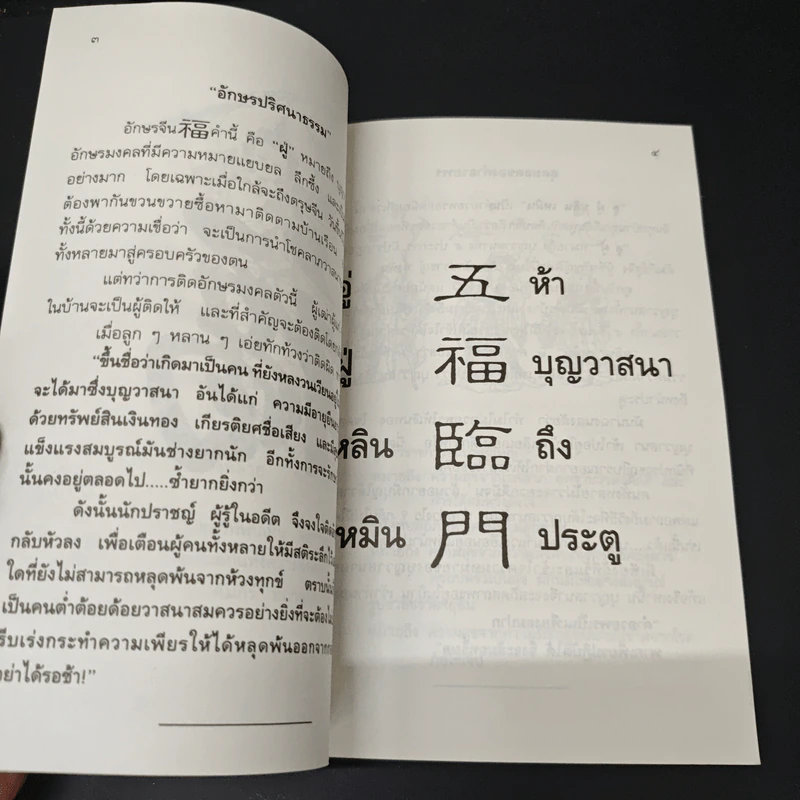 ๓
“อักษรปริศนาธรรม”
อักษรจีน福คำนี้ คือ “ฝู” หมายถึง
อักษรมงคลที่มีความหมายแยบยล ลึกซึ้ง และ
อย่างมาก โดยเฉพาะเมื่อใกล้จะถึงตรุษจีน
ต้องพากันขวนขวายซื้อหามาติดตามบ้านเรือน
ทั้งนี้ด้วยความเชื่อว่า จะเป็นการนำโชคลาภวาสนา
ทั้งหลายมาสู่ครอบครัวของตน
แต่ทว่าการติดอักษรมงคลตัวนี้
ในบ้านจะเป็นผู้ติดให้ และที่สำคัญจะต้องติดโดย
เมื่อลูก ๆ หลาน ๆ เอ่ยทักท้วงว่าติดผิด
“ขึ้นชื่อว่าเกิดมาเป็นคน ที่ยังหลงวนเวียนอยู่
จะได้มาซึ่งบุญวาสนา อันได้แก่ ความมีอายุยืน
ด้วยทรัพย์สินเงินทอง เกียรติยศชื่อเสียง
แข็งแรงสมบูรณ์มันช่างยากนัก อีกทั้งการจะรักษา
นั้นคงอยู่ตลอดไป.....ซ้ำยากยิ่งกว่า
ดังนั้นนักปราชญ์ ผู้รู้ในอดีต จึงจงใจติด
กลับหัวลง เพื่อเตือนผู้คนทั้งหลายให้มีสติระลึก
ใดที่ยังไม่สามารถหลุดพ้นจากห้วงทุกข์ ตราบนั้น
เป็นคนต่ำต้อยด้อยวาสนาสมควรอย่างยิ่งที่จะต้อง
รีบเร่งกระทำความเพียรให้ได้หลุดพ้นออกจาก
อย่าได้รอช้า!”
๔
五 ห้า
福 บุญวาสนา
หลิน 臨 ถึง
หมิน 門 ประตู